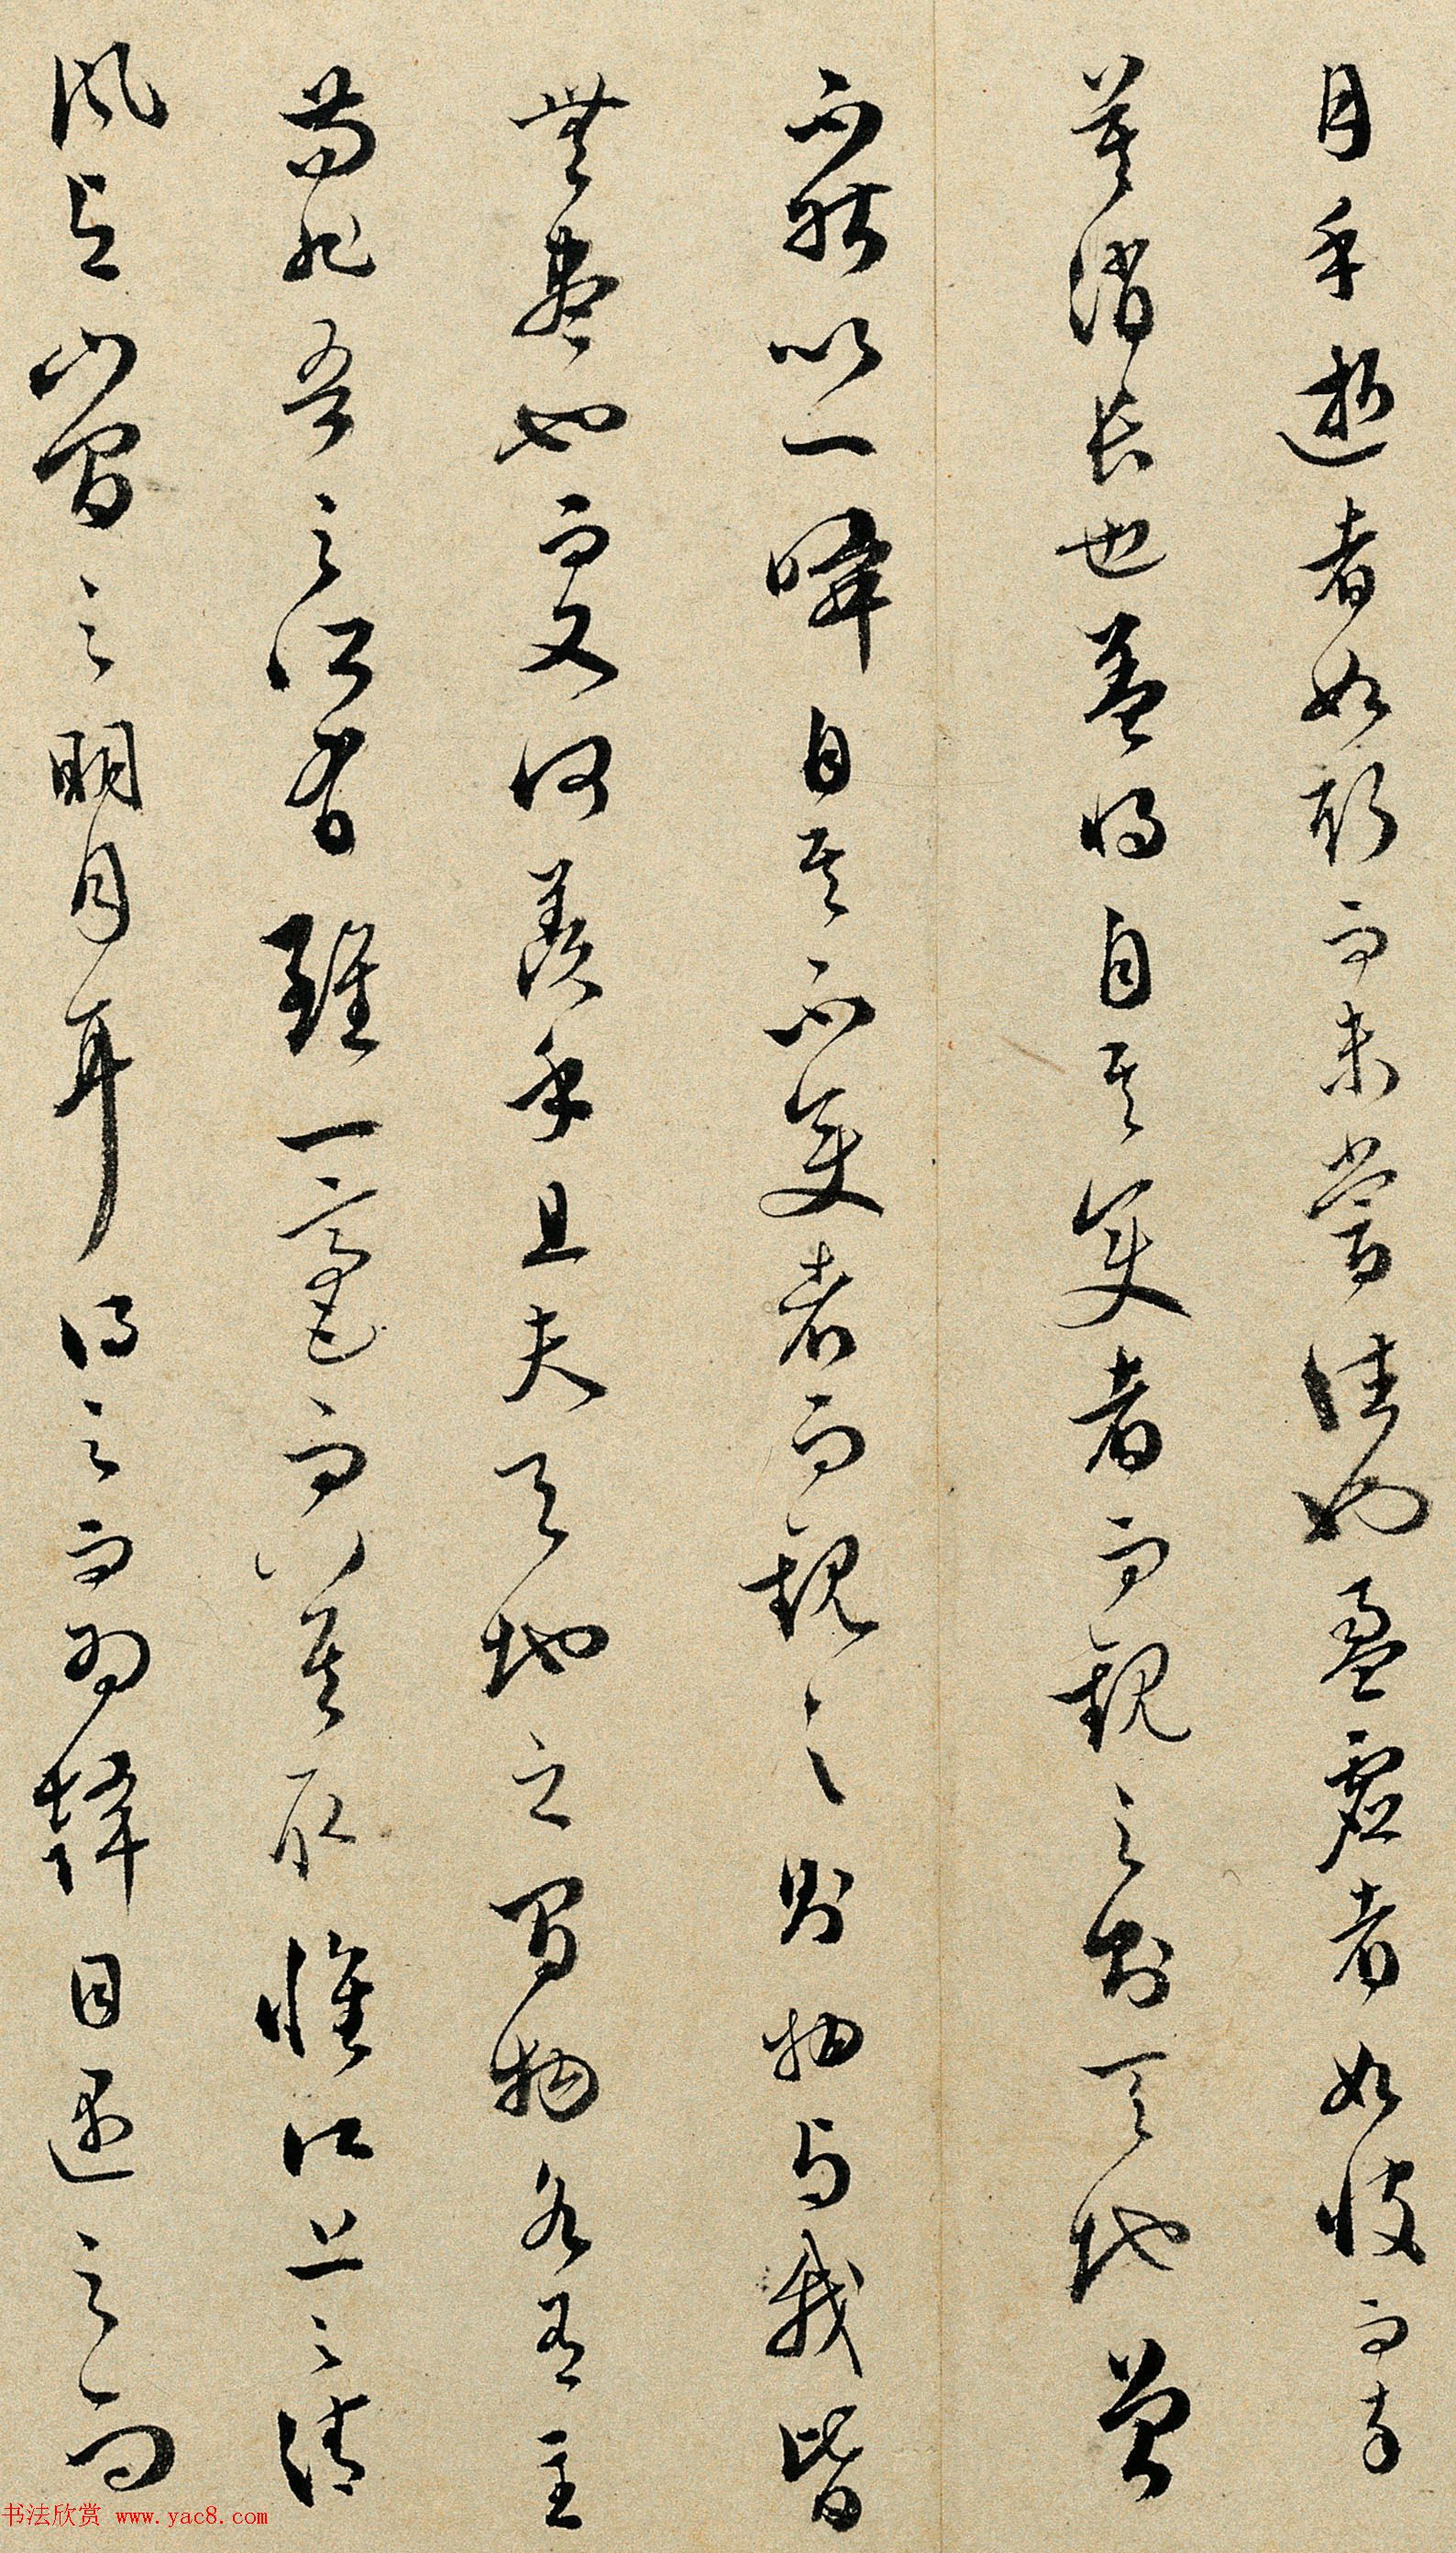 月乎逝者如斯而未嘗往也盈虛者如彼而卒
莫消長也盖將自其變者而觀之則天地曾
不能以一瞬自其不變者而觀之則物与我皆
無盡也而又何羨乎且夫天地之間物各有主
苟非吾之所有雖一毫而莫取惟江上之清
風与山間之明月耳得之而為聲目遇之而
书法欣赏 www.yac8.com